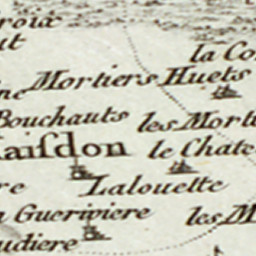 roix
ut
la Co
Mortiers Huets
ne
Bouchauts les Morti
aisdon le Chate
re Lalouette
Gueriviere les M
udiere